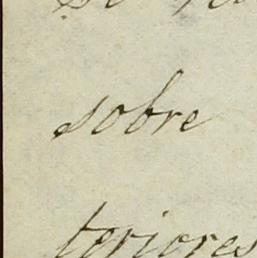 sobre
teriores